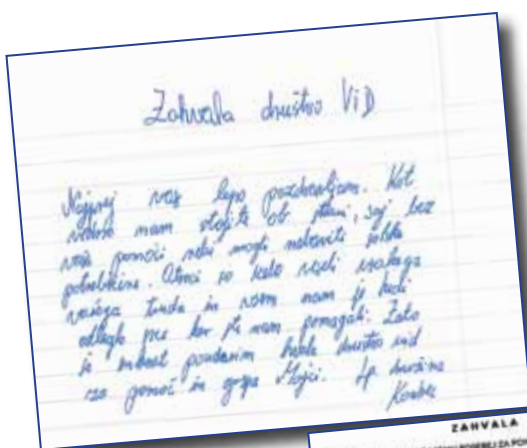 Zahvala društvo ViD
Najprej vas lepo pozdravljam. Kot
vedno nam stojite ob strani, saj bez
vaše pomoči nebi mogli nabaviti šolske
potrebščine. Otroci so veseli vsakega
vašega truda in vsem nam je
odleglo ker ste nam pomagali. Zato
še enkrat poudarim hvala društvo vid
za pomoč in gospe Mojci. Lp družina
ZAHVALA